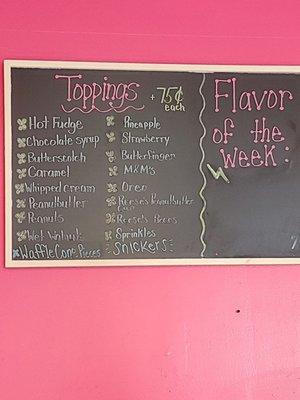 Toppings + 75¢
each
Hot Fudge
Chocolate syrup
Butterscotch
Caramel
Whipped cream
Peanutbutter
Peanuts
Wet Walnut
Waffle Cone Pieces
Pineapple
Strawberry
Butterfinger
M&M's
Oreo
Reese's Peanutbutter
Reese's Pieces
Sprinkles
Snickers
Flavor
of the
week: